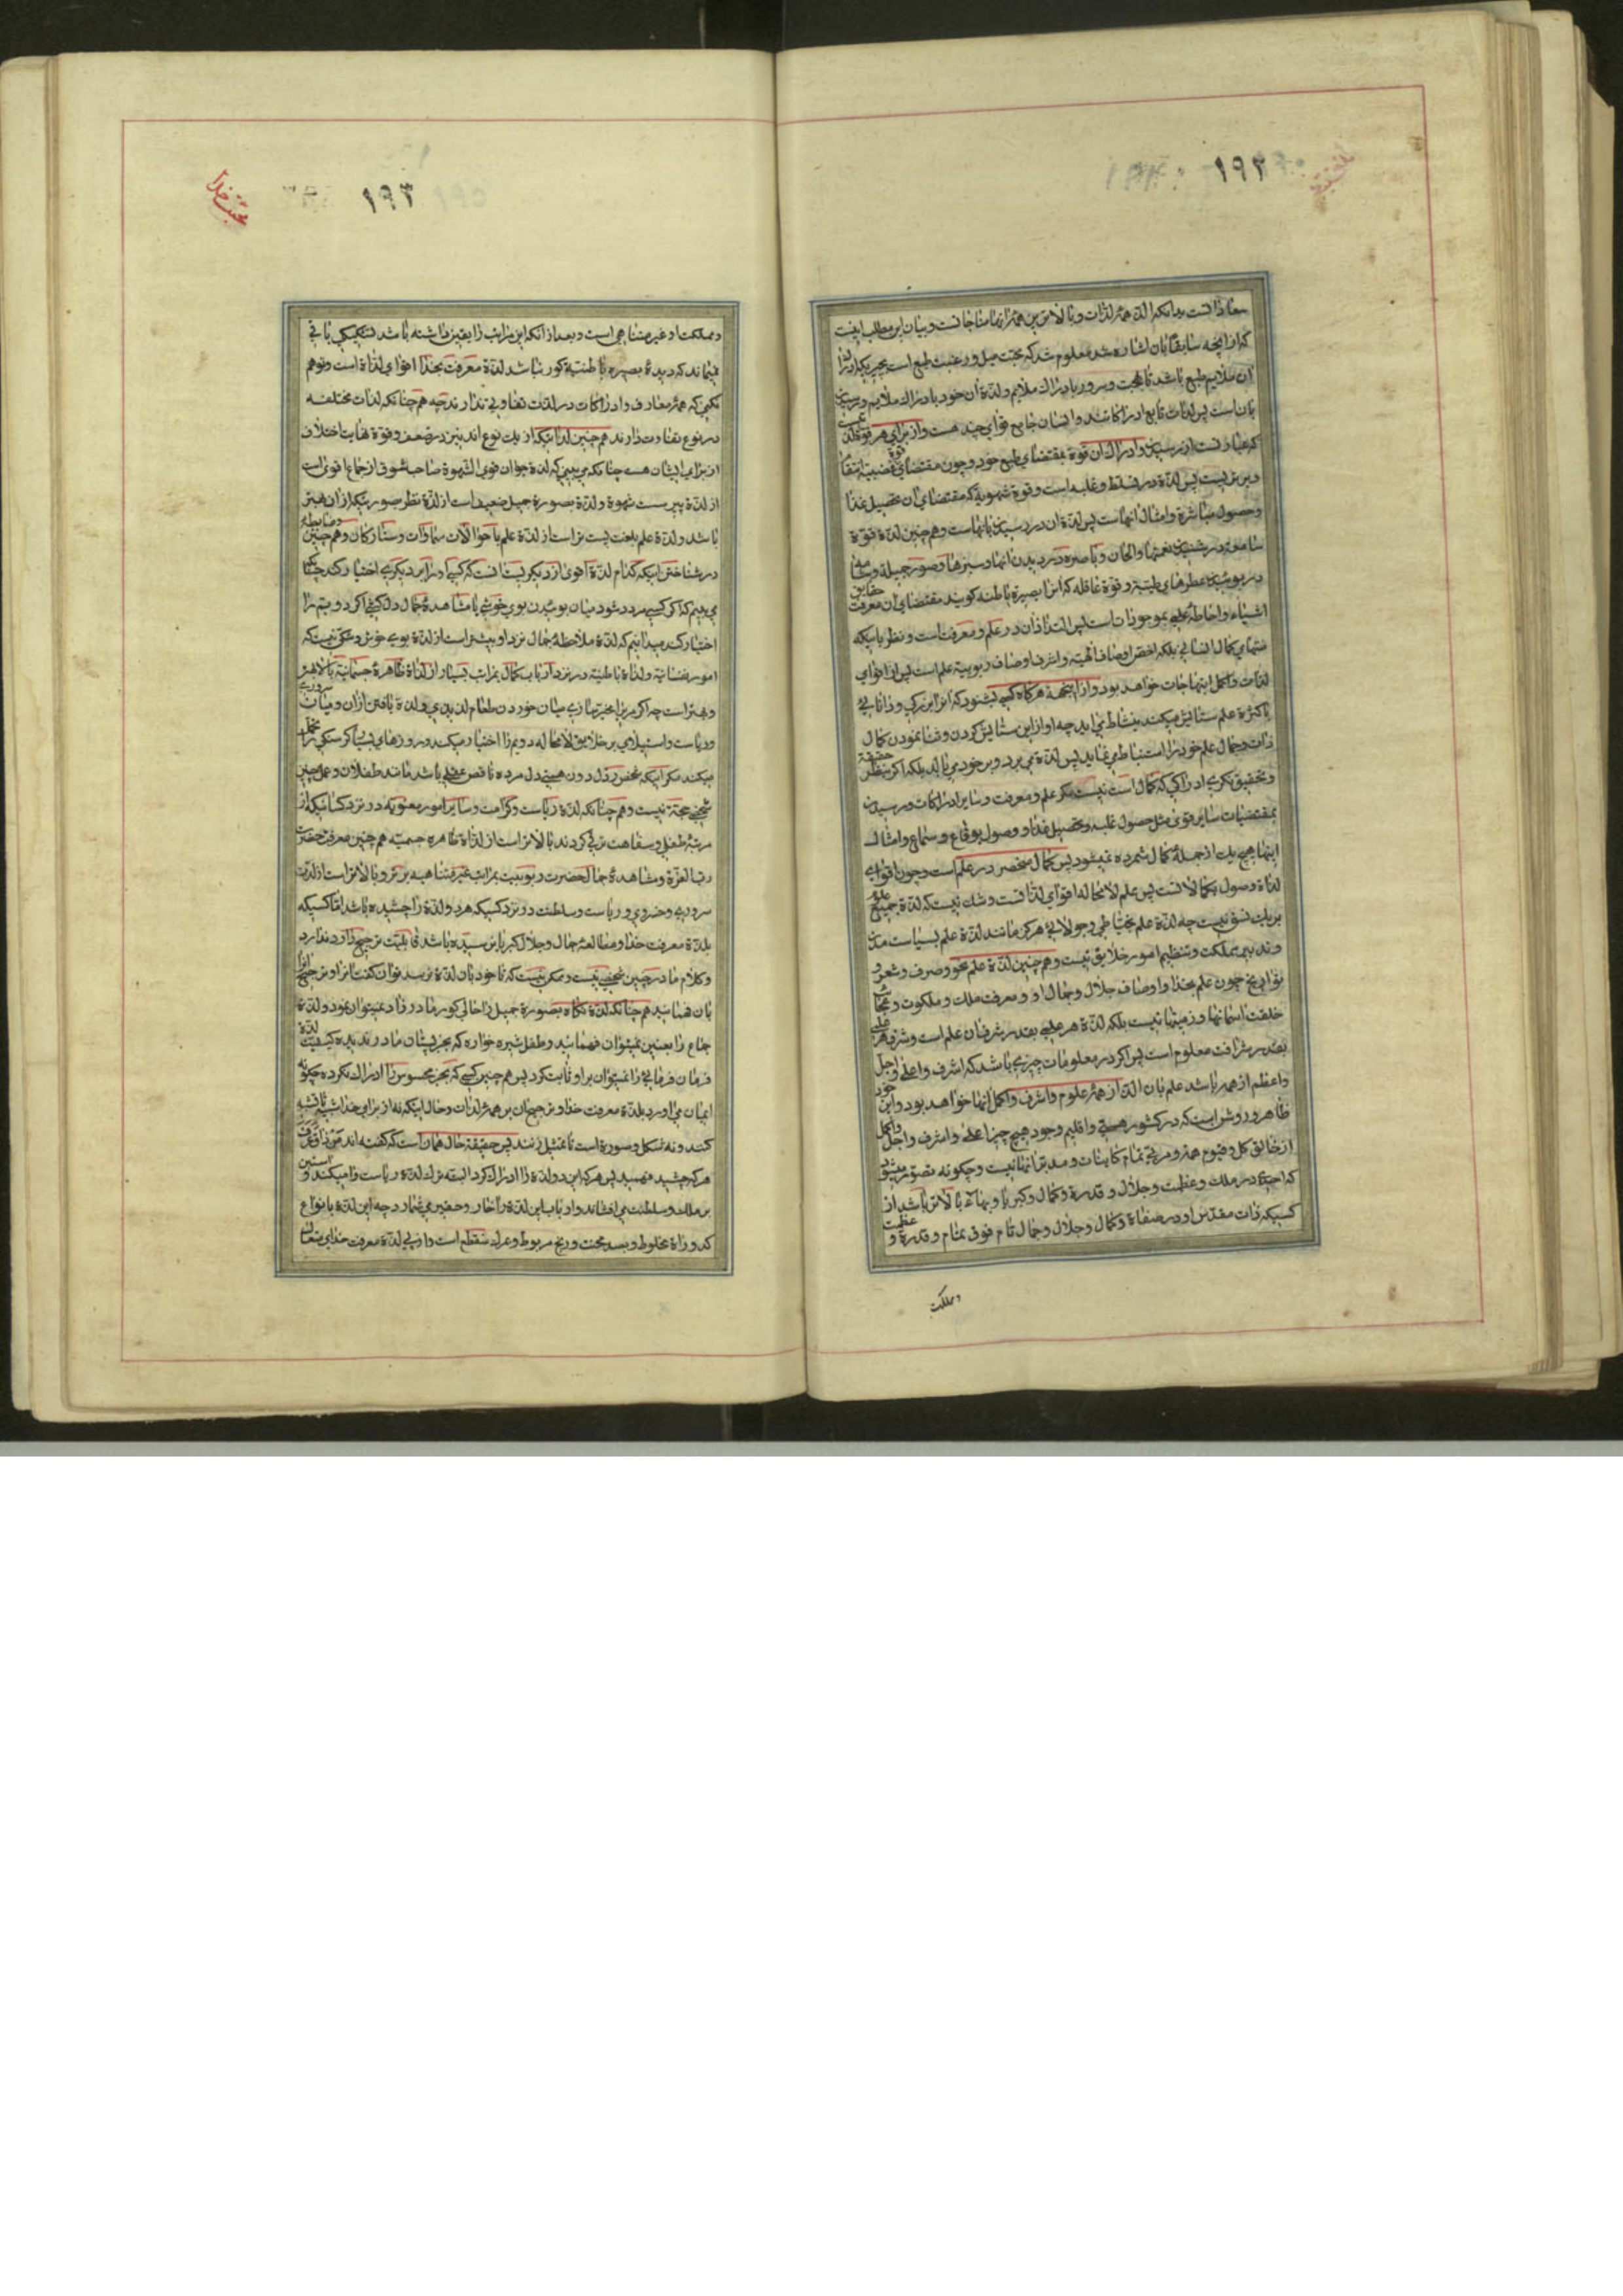 ۱۹۲
سعاداتست بدانکه الذ همهٔ لذات و بالاترین همهٔ ابتهاجاتست و بیان این مطلب اینست
که از آنچه سابقا بان اشاره شد معلوم شد که محبت میل و رغبت طبع است بچیزیکه ادراک
ان ملایم طبع باشد بابهجت و سرور بادراک ملایم و لذة ان خود بادراک ملایم و رسیدن
بان است پس لذات تابع ادراکاتند و انسان جامع قوای چند هست و از برای هر قوة لذتی
که عبارتست از رسیدن و ادراک ان قوة بمقتضای طبع خود و چون مقتضای قوة غضبیه انتقام
و برتریست پس لذة در تسلط و غلبه است و قوة شهویه که مقتضای ان تحصیل غذا
و حصول مباشرة و امثال انهاست پس لذة ان در رسیدن بانهاست و هم چنین لذة قوة
سامعه در شنیدن نغمها و الحان و باصره در دیدن انها و سبزها و صور جمیله و شامه
در بوئیدن عطرهای طیبه و قوة عاقله که انرا بصیرة باطنه کویند مقتضای ان معرفت حقایق
اشیاء و احاطهٔ علمیه بموجودات است پس التذاذ ان در علم و معرفت است و نظر باینکه
منتهای کمال انسانی بلکه اخص اوصاف الهیه و اشرف اوصاف ربوبیه علم است پس از اقوای
لذات و اکمل ابتهاجات خواهد بود و از اینجهة هرکاه کسی بشنود که انرا بزیرکی و دانائی
با کثرة علم ستایش میکنند بنشاط می اید چه او از این ستایش کردن و ثنا نمودن کمال
ذات و جمال علم خود را استنباط می نماید پس لذة می برد و بر خود می بالد بلکه اکر بنظر حقیقة
و تحقیق نکری ادراکی که کمال است نیست مکر علم و معرفت و سایر ادراکات و رسیدن
بمقتضیات سایر قوی مثل حصول غلبه و تحصیل غذا و وصول بوقاع و سماع و امثال
اینها هیچ یک از جملهٔ کمال شمرده نمیشود پس کمال منحصر در علم است و چون اقوای
لذاة وصول بکمالاتست پس علم لامحاله اقوای لذاتست و شک نیست که لذة جمیع علوم
بر یک نسق نیست چه لذة علم بخیاطی و جولائی هرکز مانند لذة علم بسیاست مدن
و تدبیر مملکت و تنظیم امور خلایق نیست و هم چنین لذة علم نحو و صرف و شعر و
تواریخ چون علم بخدا و اوصاف جلال و جمال او و معرفت ملک و ملکوت و عجایب
خلقت اسمانها و زمینها نیست بلکه لذة هر علمی بقدر شرف ان علم است و شرف هر علمی
بقدر شرافت معلوم است پس اکر در معلومات چیزی باشد که اشرف و اعلی و اجل
و اعظم از همه باشد علم بان الذ از همهٔ علوم و اشرف و اکمل انها خواهد بود و این خود
ظاهر و روشن است که در کشور هستی و اقلیم وجود هیچ چیز اعلی و اشرف و اجل و اکمل
از خالق کل و قیوم همه و مربی تمام کاینات و مدبر انها نیست و چکونه تصور میشود
که احدی در ملک و عظمت و جلال و قدرة و کمال و کبریا و بهاء بالاتر باشد از
کسیکه ذات مقدس او در صفاة و کمال و جلال و جمال تام فوق تمام و قدرة و عظمت
و مملکت
محبت خدا
۱۹۳
و مملکت او غیر متناهی است و بعد از انکه این مراتب را یقین داشته باشد شکی باقی
نمیماند که دیدهٔ بصیرة باطنیه کور نباشد لذة معرفت بخدا اقوای لذاة است و توهم
نکنی که همهٔ معارف و ادراکات در لذت تفاوتی ندارند چه هم چنانکه لذات مختلفه
در نوع تفاوت دارند هم چنین لذاتیکه از یک نوع اند نیز در ضعف و قوة نهایت اختلاف
از برای ایشان هست چنانکه می بینی که لذة جوان قوی الشهوة صاحب شوق از جماع اقوی است
از لذة پیر سست شهوة و لذة بصورة جمیل ضعیف است از لذة نظر بصورتیکه از ان بهتر
باشد و لذة علم بلغت پست تر است از لذة علم باحوالات سماوات و ستارکان و هم چنین و ضابطه
در شناختن اینکه کدام لذة اقوی از دیکریست انست که کسی او را بر دیکری اختیار کند چنانکه
می بینم که اکر کسی مردد شود میان بوئیدن بوی خوشی با مشاهدهٔ جمال دل کشی اکر دویم را
اختیار کند میدانیم که لذة ملاحظهٔ جمال نزد او بیشتر است از لذة بوی خوش و شکی نیست که
امور نفسانیه و لذاة باطنیه در نزد ارباب کمال بمراتب بسیار از لذاة ظاهرهٔ جسمانیه بالاتر
و بهتر است چه اکر مردی را مخیر سازی میان خوردن طعام لذیذی و لذة یافتن از ان و میان سروری
و ریاست و استیلای بر خلایق لامحاله دویم را اختیار میکند و روزهای بسیار کرسنکی را تحمل
میکند مکر اینکه شخص رذل دون همتی دل مرده ناقص عقلی باشد مانند طفلان و عمل چنین
شخصی حجة نیست و هم چنانکه لذة ریاست و کرامت و سایر امور معنویه در نزد کسانیکه از
مرتبهٔ طفلی و سفاهت ترقی کردند بالاتر است از لذاة ظاهره جسمیه هم چنین معرفت حضرت
رب العزة و مشاهدهٔ جمال حضرت ربوبیت بمراتب غیر متناهیه برتر و بالاتر است از لذت
سروری و خسروی و ریاست و سلطنت در نزد کسیکه هر دو لذة را چشیده باشد اما کسیکه
بلذة معرفت خدا و مطالعهٔ جمال و جلال کبریا نرسیده باشد قابلیت ترجیح را و ندارد
و کلام ما در چنین شخصی نیست و ممکن نیست که تا خود بان لذة نرسد توان کفت انرا و ترجیح انرا
بان فهمانید هم چنانکه لذة نکاه بصورة جمیل را حالی کور مادرزاد نمیتوان نمود و لذة
جماع را بعنین نمیتوان فهمانید و طفل شیره خواره که بجز پستان مادر ندیده کیفیت لذة
فرمان فرمائی را نمیتوان بر او ثابت کرد پس هم چنین کسی که بجز محسوس را ادراک نکرده چکونه
ایمان می اورد بلذة معرفت خدا و ترجیح ان بر همهٔ لذات و حال اینکه نه از برای خدا شبیهی تا تشبیه
کنند و نه شکل و صورة است تا تمثیل زنند پس حقیقة حال همان است که کفته اند من ذاق عرف
هر که چشید فهمید پس هر که این دو لذة را ادراک کرد البته ترک لذة ریاست را میکند و استین
بر ملک و سلطنت می افشاند و ارباب این لذة را خار و حقیر می شمارد چه این لذة بانواع
کدوراة مخلوط و بسد محنت و رنج مربوط و بمرک منقطع است و از پی لذة معرفت خدای متعال